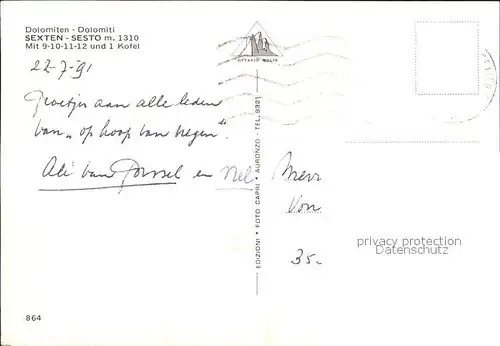 Dolomiten - Dolomiti
SEXTEN - SESTO m. 1310
Mit 9-10-11-12 und 1 Kofel
22-7-91
Groetjes aan alle leden
van „op hoop van zegen".
Ali van en Nel
Mevr
Von
35.
privacy protection
Datenschutz
EDIZIONI • FOTO CAPRI • AURONZO - TEL. 9321
864